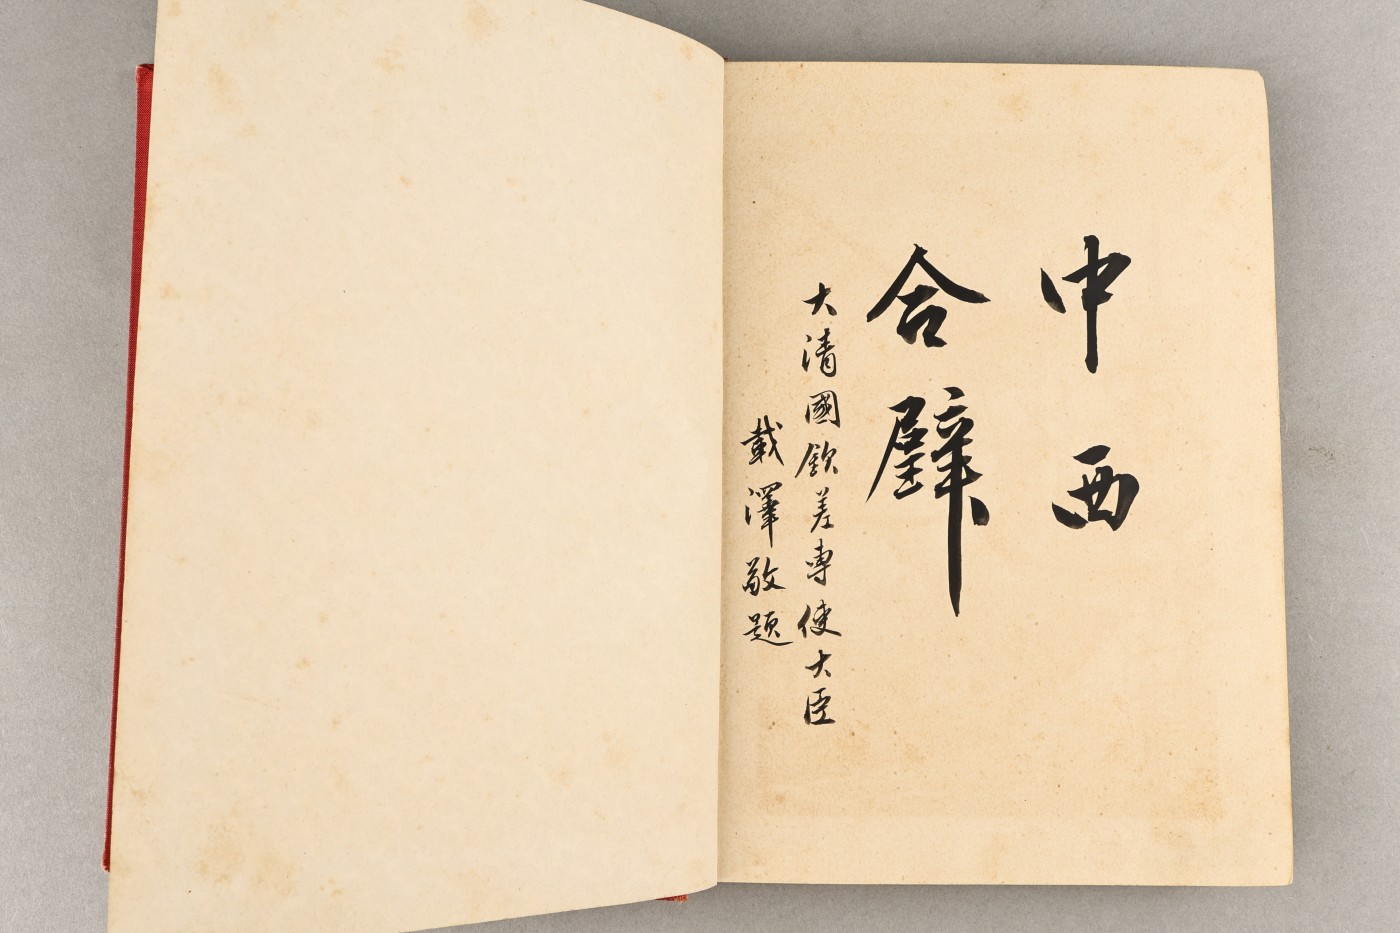 中西
合璧
大清國欽差專使大臣
載澤敬題